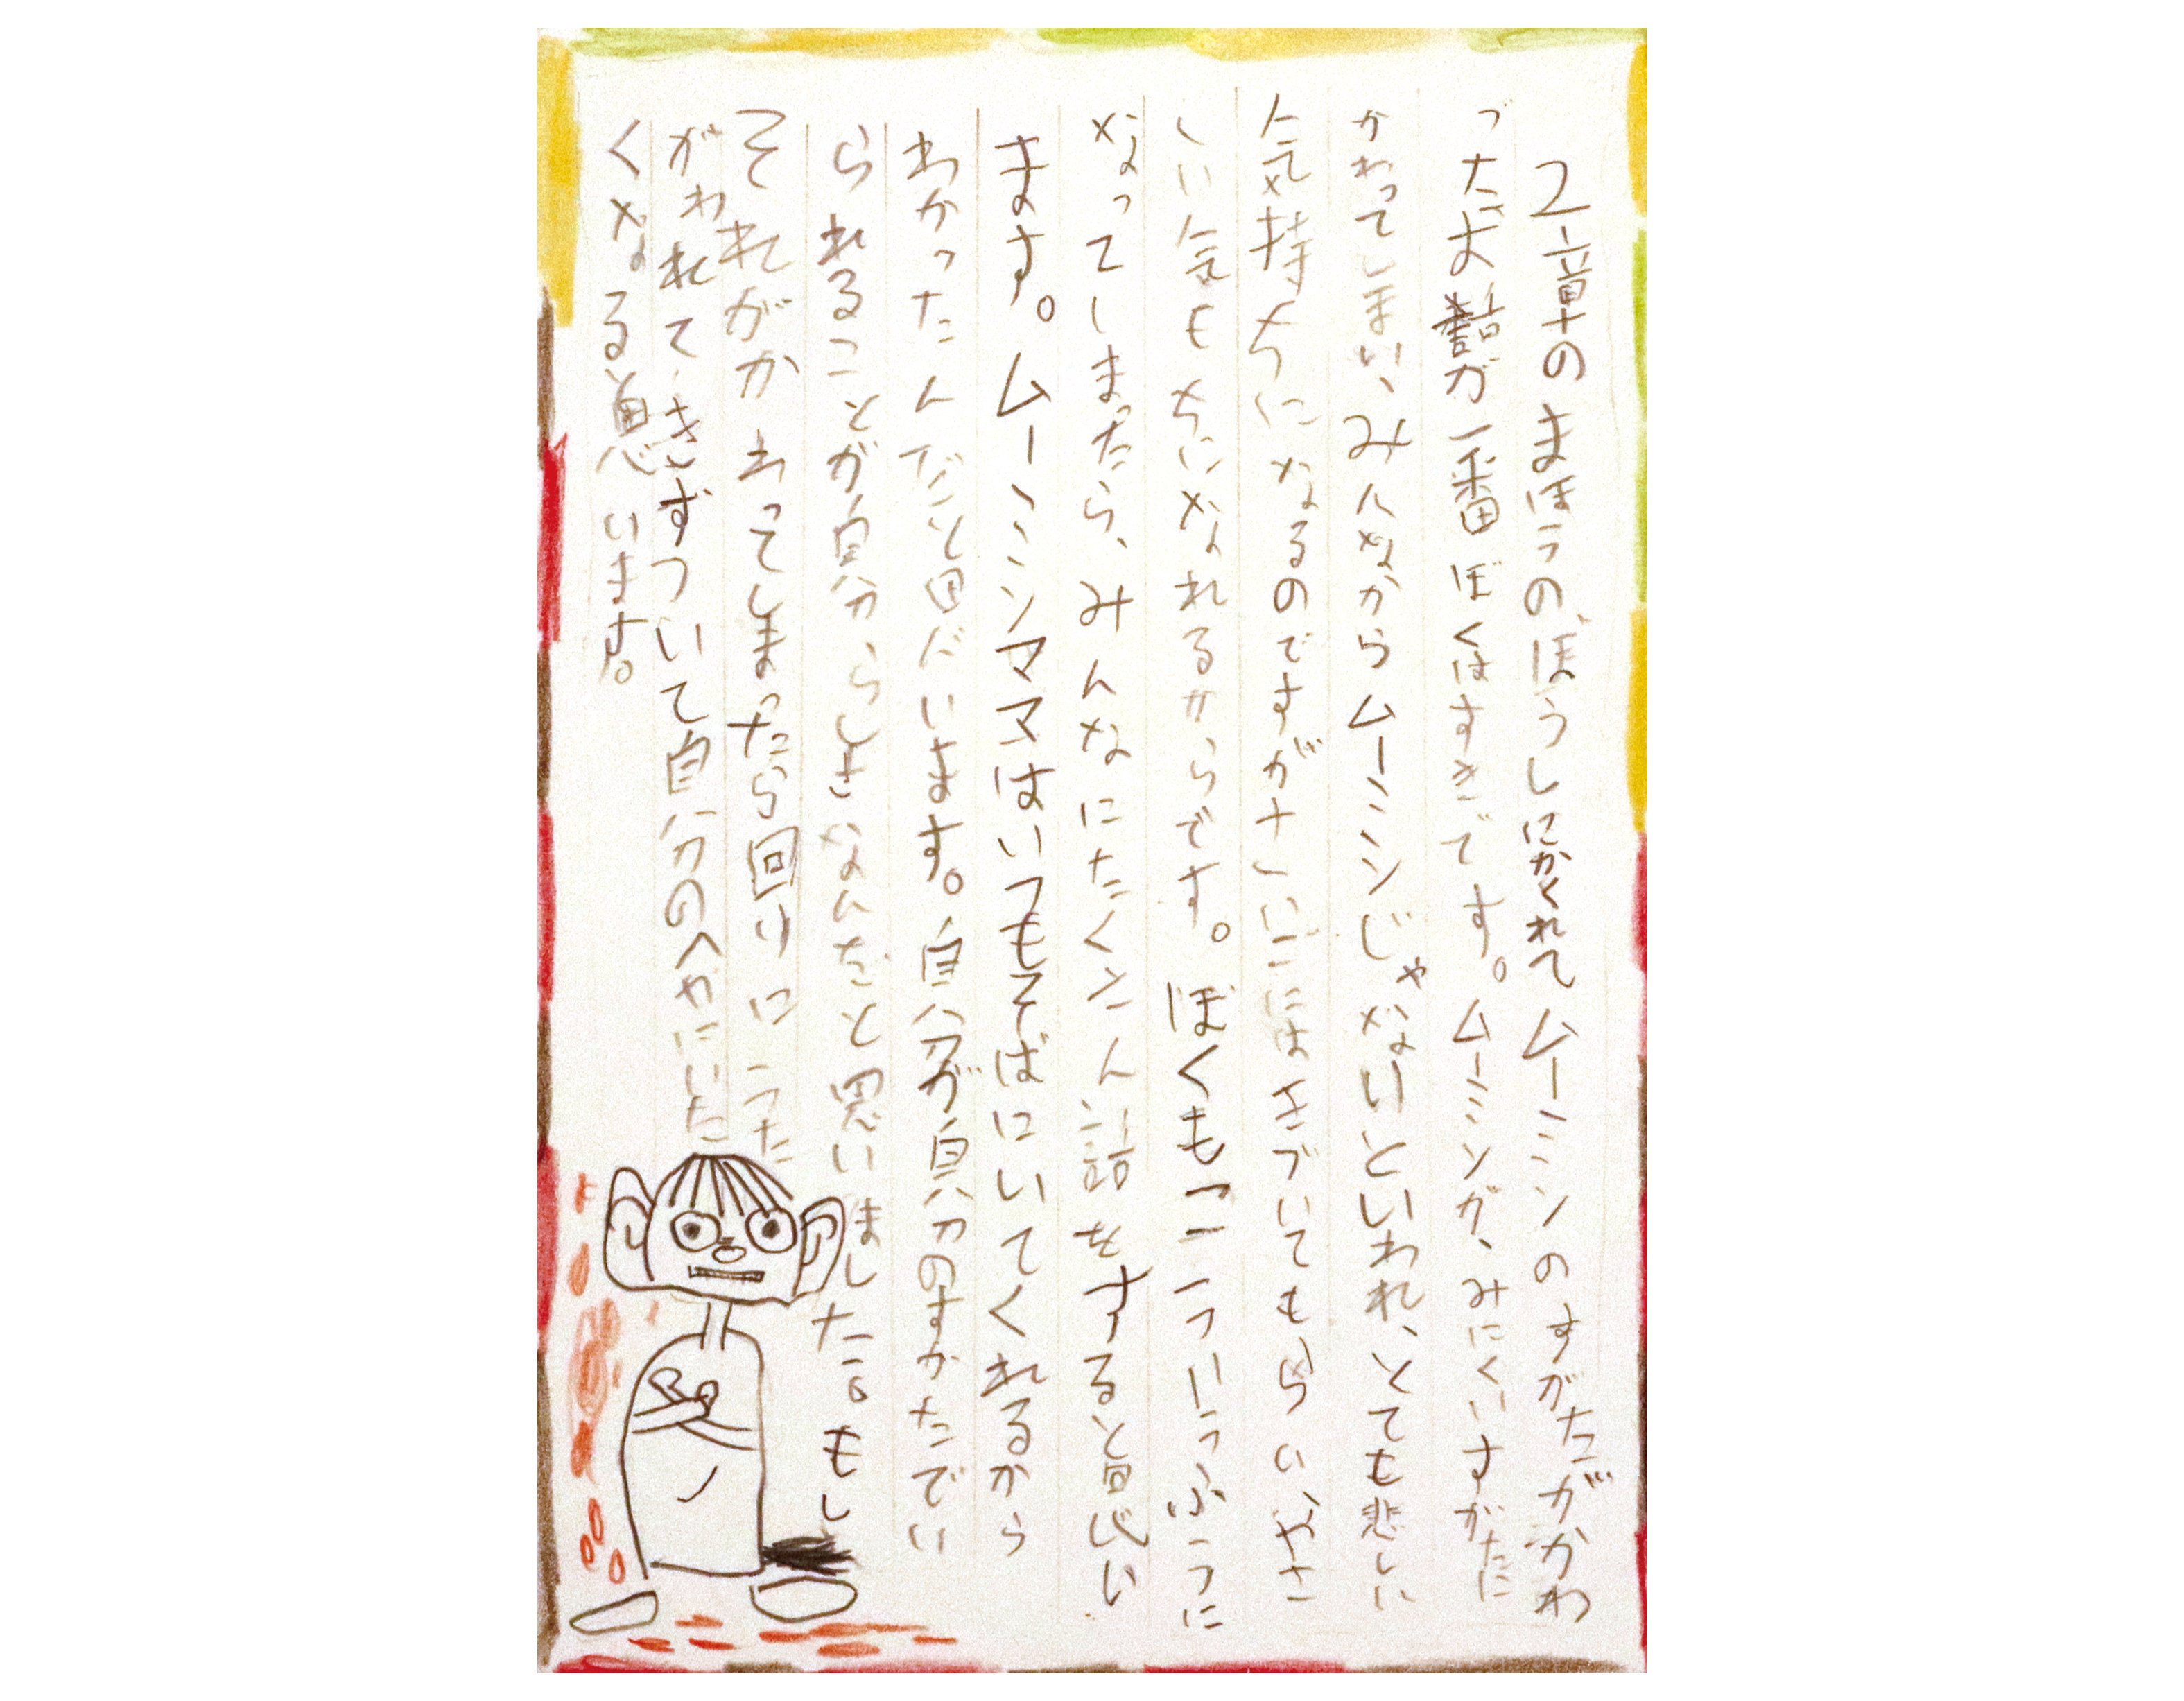 2章のまほうのぼうしにかくれてムーミンのすがたがかわ
ったお話が一番ぼくはすきです。ムーミンが、みにくいすがたに
かわってしまい、みんなからムーミンじゃないといわれ、とても悲しい
気持ちになるのですがさいごにはきづいてもらい、やさ
しい気もちになれるからです。ぼくもこういうふうに
なってしまったら、みんなにたくさん話をすると思い
ます。ムーミンママはいつもそばにいてくれるから
わかったんだと思います。自分が自分のすかたでい
られることが自分らしさなんだと思いました。もし
それがかわってしまったら回りにうた
がわれて、きずついて自分のへやにいた
くなると思います。